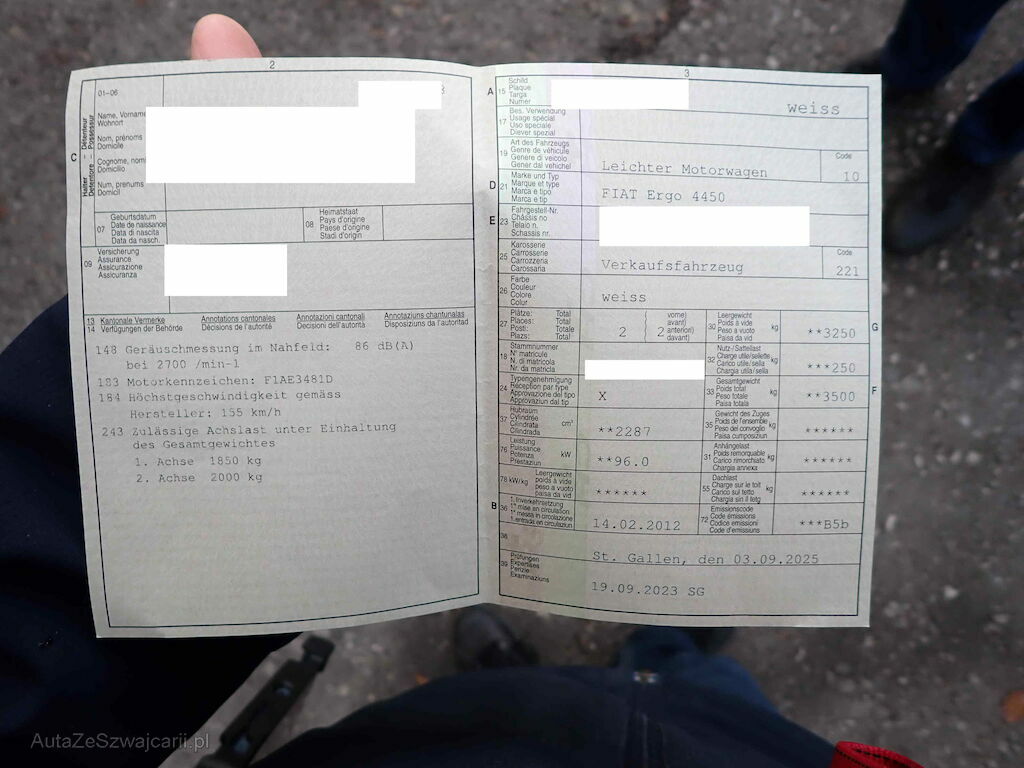 2
01-06
C
Halter – Détenteur
Detentore – Possessur
Name, Vorname
Wohnort
Nom, prénoms
Domicile
Cognome, nomi
Domicilio
Num, prenums
Domicil
07
Geburtsdatum
Date de naissance
Data di nascita
Data da nasch.
08
Heimatstaat
Pays d'origine
Paese d'origine
Stadi d'origin
09
Versicherung
Assurance
Assicurazione
Assicuranza
13 Kantonale Vermerke Annotations cantonales Annotazioni cantonali Annotaziuns chantunalas
14 Verfügungen der Behörde Décisions de l'autorité Decisioni dell'autorità Disposiziuns da l'autoritad
148 Geräuschmessung im Nahfeld: 86 dB(A)
bei 2700 /min-1
183 Motorkennzeichen: F1AE3481D
184 Höchstgeschwindigkeit gemäss
Hersteller: 155 km/h
243 Zulässige Achslast unter Einhaltung
des Gesamtgewichtes
1. Achse 1850 kg
2. Achse 2000 kg
3
A 15
Schild
Plaque
Targa
Numer
weiss
17
Bes. Verwendung
Usage spécial
Uso speciale
Diever spezial
19
Art des Fahrzeugs
Genre de véhicule
Genere di veicolo
Gener dal vehichel
Leichter Motorwagen
Code
10
D 21
Marke und Typ
Marque et type
Marca e tipo
Marca e tip
FIAT Ergo 4450
E 23
Fahrgestell-Nr.
Châssis no
Telaio n.
Schassis nr.
25
Karosserie
Carrosserie
Carrozzeria
Carossaria
Verkaufsfahrzeug
Code
221
26
Farbe
Couleur
Colore
Colur
weiss
27
Plätze: Total
Places: Total
Posti: Totale
Plazs: Total
2
vorne)
avant)
2 anteriori)
davant)
30
Leergewicht
Poids à vide
Peso a vuoto
Paisa da vid
kg
**3250
G
18
Stammnummer
N° matricule
N. di matricola
Nr. da matricla
32
Nutz-/Sattellast
Charge utile/sellette
Carico utile/sella
Chargia utila/sella
kg
***250
24
Typengenehmigung
Réception par type
Approvazione del tipo
Approvaziun dal tip
X
33
Gesamtgewicht
Poids total
Peso totale
Paisa totala
kg
**3500
F
37
Hubraum
Cylindrée
Cilindrata
Cilindrada
cm³
**2287
35
Gewicht des Zuges
Poids de l'ensemble
Peso del convoglio
Paisa cumposiziun
kg
******
76
Leistung
Puissance
Potenza
Prestaziun
kW
**96.0
31
Anhängelast
Poids remorquable
Carico rimorchiato
Chargia annexa
kg
******
78 kW/kg
Leergewicht
poids à vide
peso a vuoto
paisa da vid
******
55
Dachlast
Charge sur le toit
Carico sul tetto
Chargia sin il tetg
kg
******
B 36
1. Inverkehrsetzung
1re mise en circulation
1a messa in circolazione
1. entrada en circulaziun
14.02.2012
72
Emissionscode
Code émissions
Codice emissioni
Code d'emissiuns
***B5b
38
St. Gallen, den 03.09.2025
39
Prüfungen
Expertises
Perizie
Examinaziuns
19.09.2023 SG
AutaZeSzwajcarii.pl